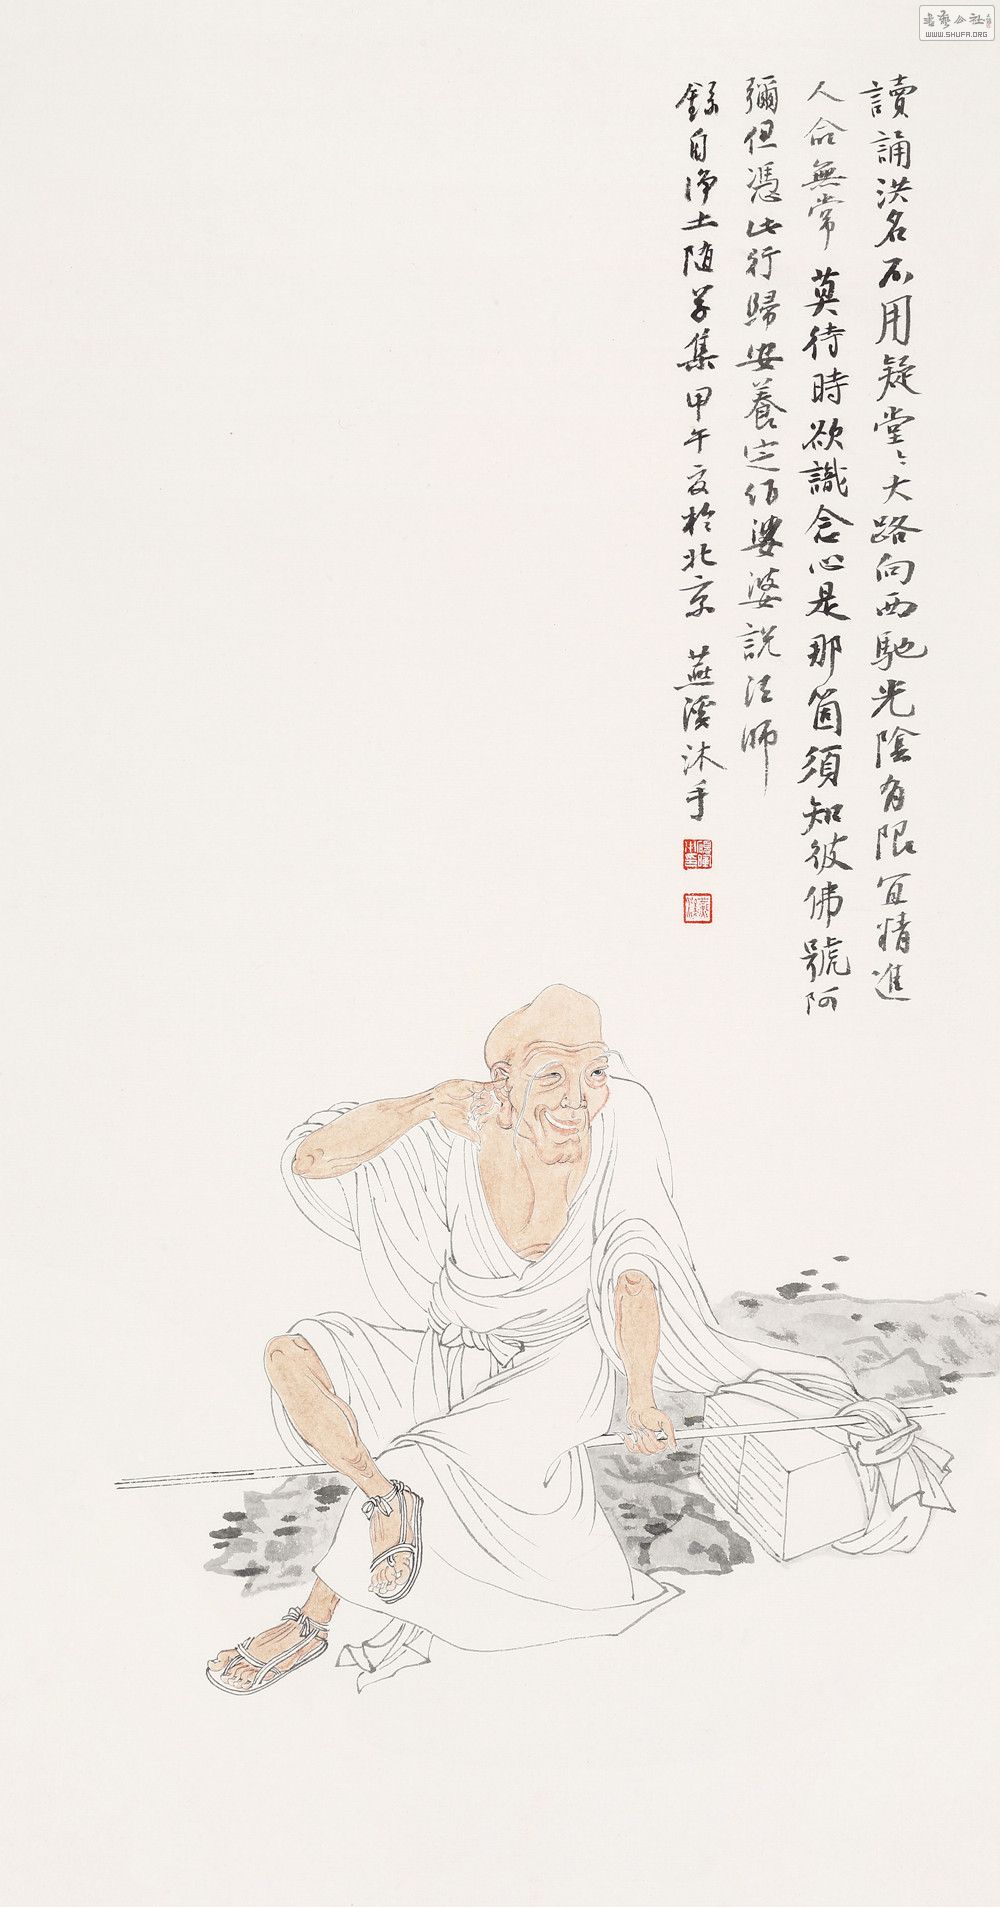 讀誦洪名不用疑堂〻大路向西馳光陰有限宜精進
人命無常莫待時欲識念心是那箇須知彼佛號阿
彌但憑此行歸安養定作娑婆說法師
錄自淨土隨學集甲午夏於北京 燕溪沐手
書藝公社
WWW.SHUFA.ORG